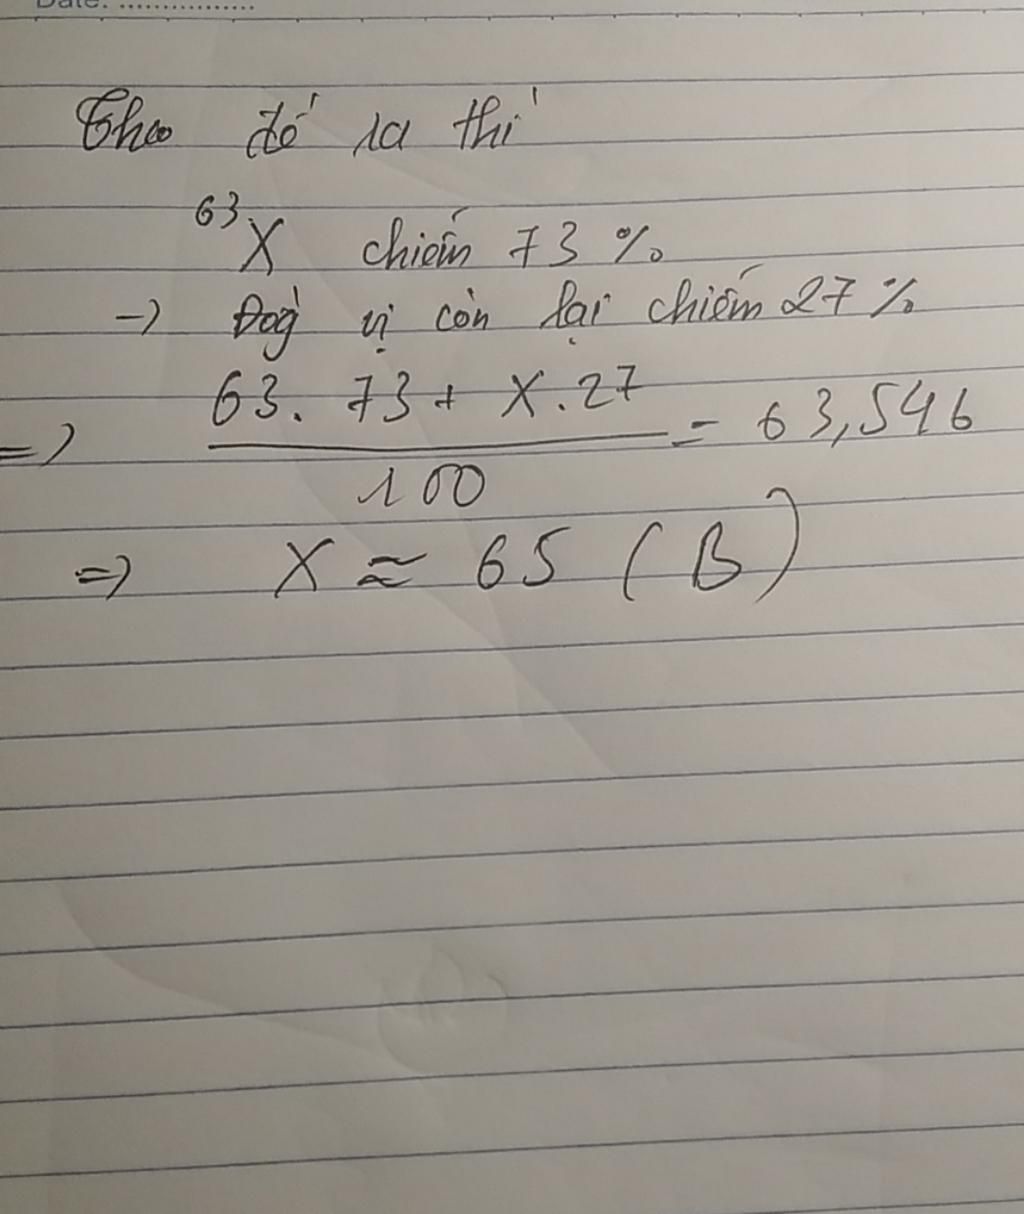 Date: ................
Theo đề ra thì
⁶³X chiếm 73 %
→ Đồg vị còn lại chiếm 27 %
=> (63. 73 + X. 27) / 100 = 63,546
=> X ≈ 65 (B)